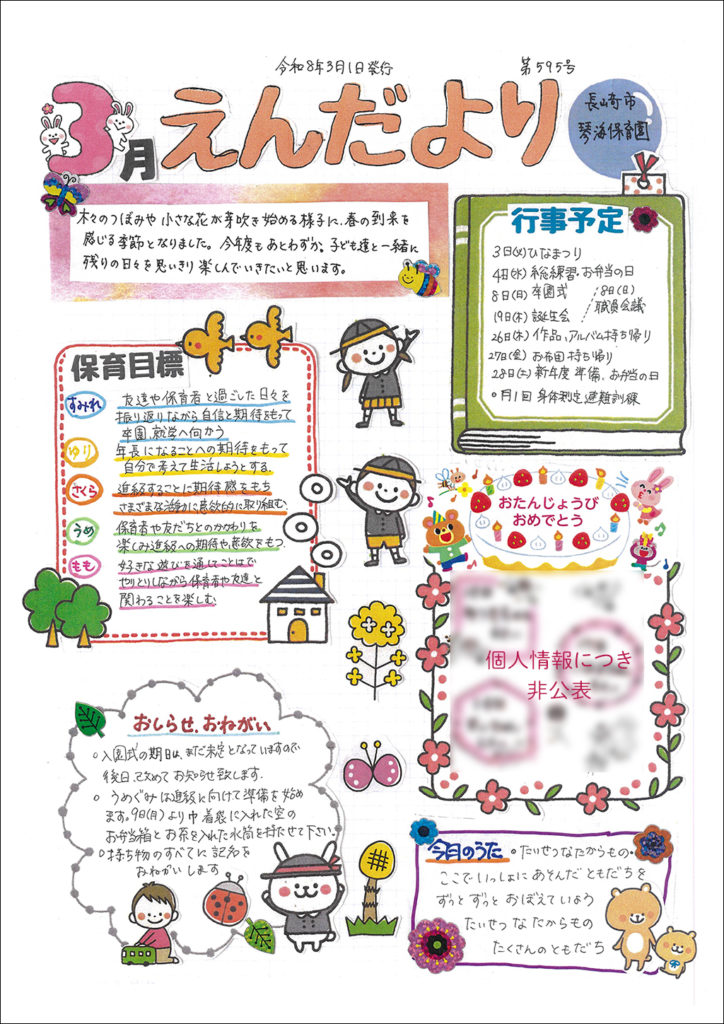 令和8年3月1日発行
第595号
3月 えんだより
長崎市
琴海保育園
木々のつぼみや小さな花が芽吹き始める様子に、春の到来を
感じる季節となりました。今年度もあとわずか。子ども達と一緒に
残りの日々を思いきり楽しんでいきたいと思います。
行事予定
3日(火)ひなまつり
4日(水)総練習、お弁当の日
8日(日)卒園式
8日(日)
職員会議
19日(木)誕生会
26日(木)作品、アルバム持ち帰り
27日(金)お布団持ち帰り
28日(土)新年度準備、お弁当の日
○月1回身体測定、避難訓練
保育目標
すみれ
友達や保育者と過ごした日々を
振り返りながら自信と期待をもって
卒園、就学へ向かう
ゆり
年長になることへの期待をもって
自分で考えて生活しようとする。
さくら
進級することに期待感をもち
さまざまな活動に意欲的に取り組む。
うめ
保育者や友だちとのかかわりを
楽しみ進級への期待や意欲をもつ
もも
好きな遊びを通してことばで
やりとりしながら保育者や友達と
関わることを楽しむ
おたんじょうび
おめでとう
個人情報につき
非公表
おしらせ、おねがい
○入園式の期日は、まだ未定となっていますので
後日、改めてお知らせ致します。
○うめぐみは進級に向けて準備を始め
ます。9日(月)より巾着袋に入れた空の
お弁当箱とお茶を入れた水筒を持たせて下さい。
○持ち物のすべてに記名を
おねがいします
今月のうた
○たいせつなたからもの
ここでいっしょにあそんだともだちを
ずっとずっとおぼえていよう
たいせつなたからもの
たくさんのともだち